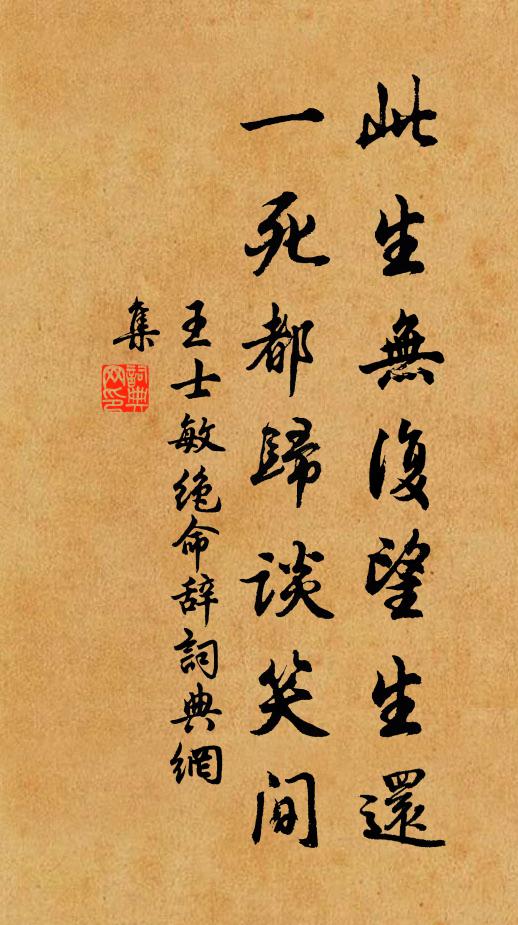 此生無復望生還
一死都歸談笑间
王士敏绝命辞詞典網
集
詞典
网印